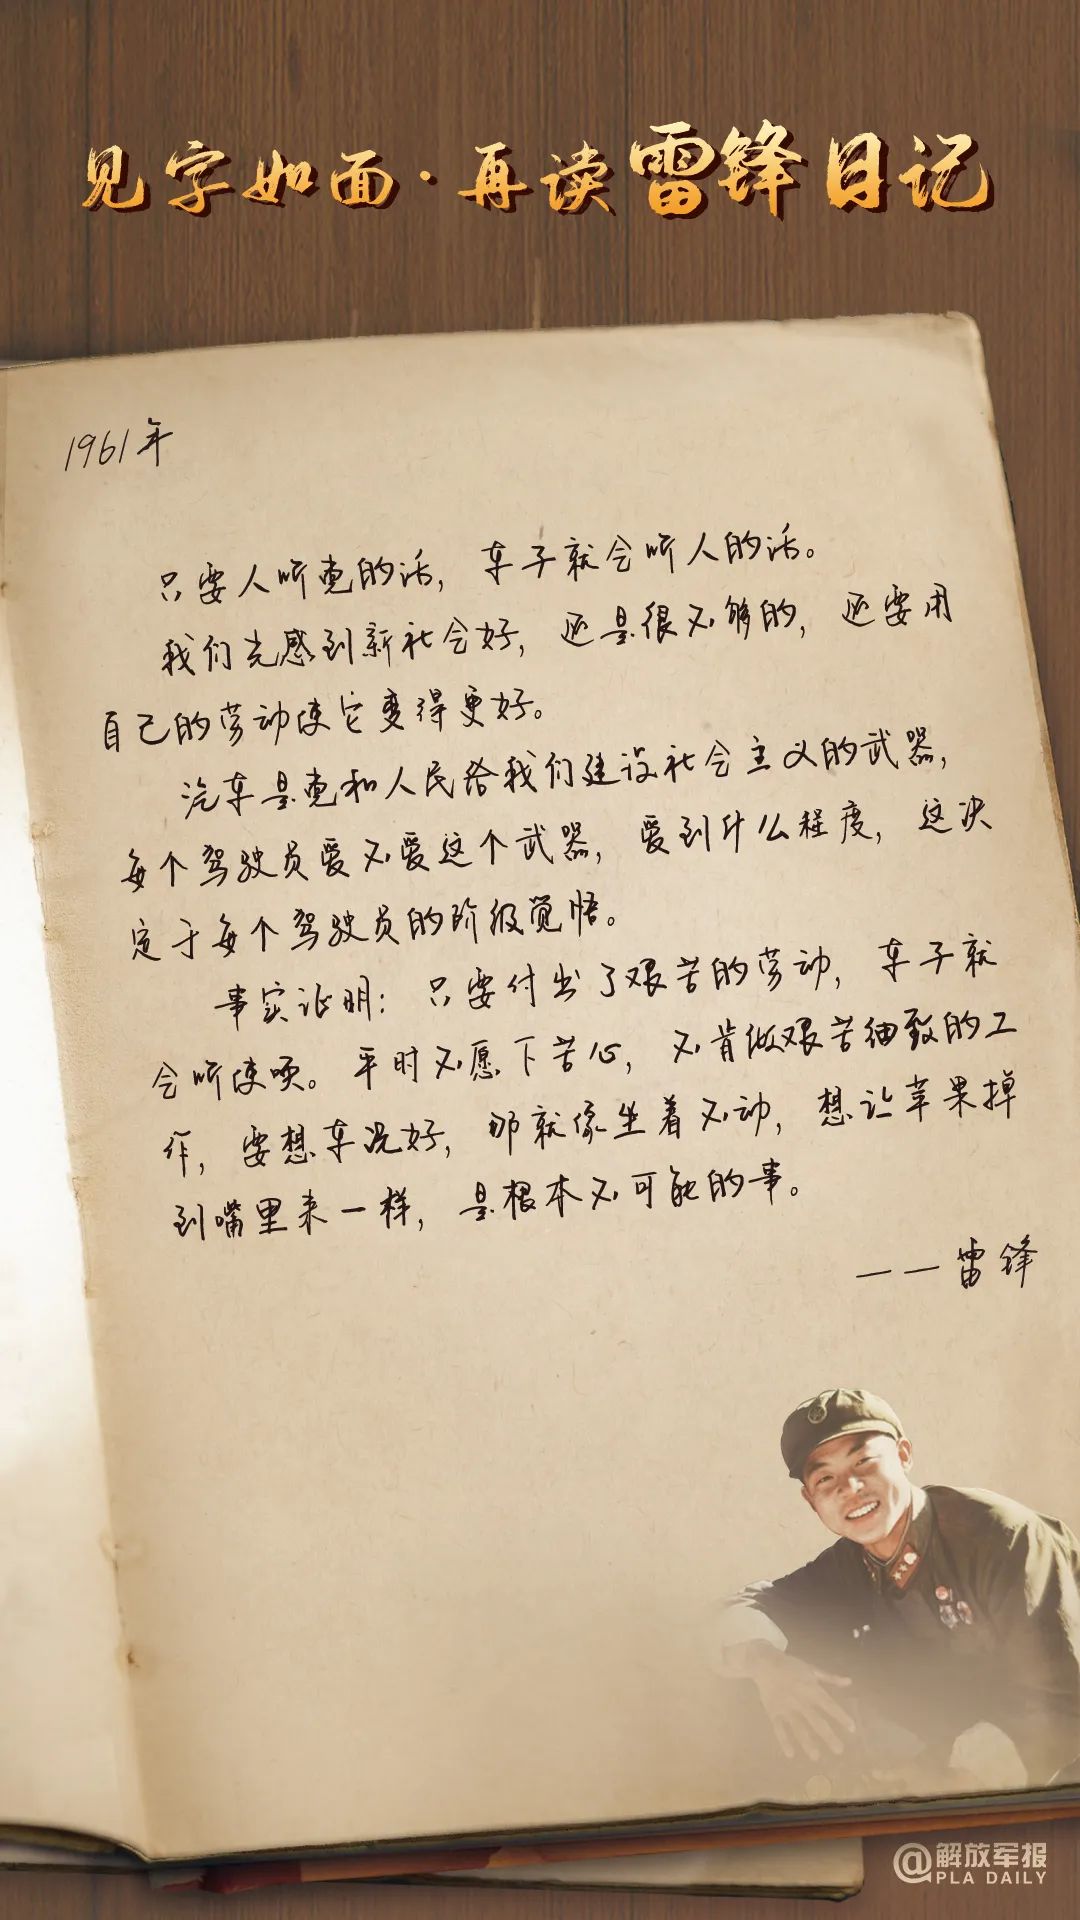 见字如面·再读雷锋日记
1961年
只要人听党的话，车子就会听人的话。
我们光感到新社会好，还是很不够的，还要用
自己的劳动使它变得更好。
汽车是党和人民给我们建设社会主义的武器，
每个驾驶员爱不爱这个武器，爱到什么程度，这决
定于每个驾驶员的阶级觉悟。
事实证明：只要付出了艰苦的劳动，车子就
会听使唤。平时不愿下苦心，不肯做艰苦细致的工
作，要想车况好，那就像坐着不动，想让苹果掉
到嘴里来一样，是根本不可能的事。
——雷锋
@解放军报
PLA DAILY